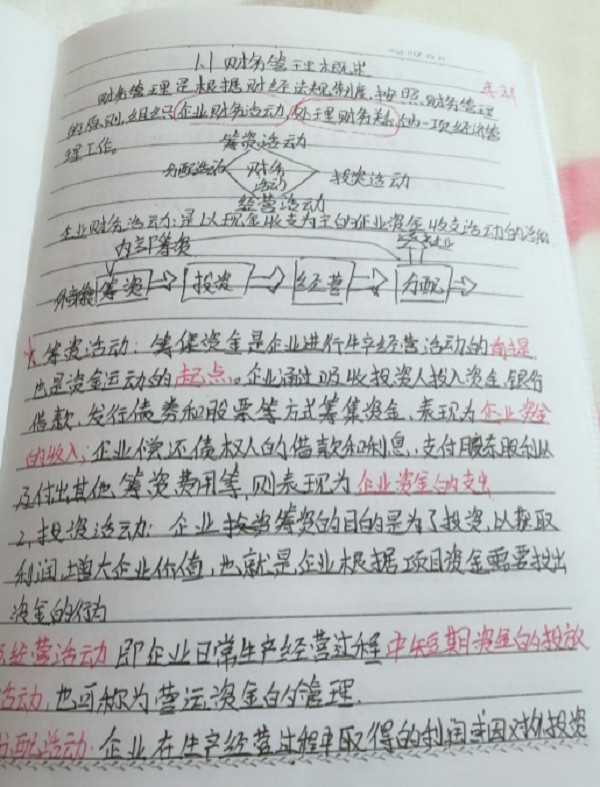 1.1 财务管理概述
财务管理是根据财经法规制度,按照财务管理
的原则,组织企业财务活动,处理财务关系的一项经济管
理工作。
筹资活动
分配活动 财务活动 投资活动
经营活动
企业财务活动:是以现金收支为主的企业资金收支活动的总称
内部筹资
筹资 投资 经营 分配
筹资活动:筹集资金是企业进行生产经营活动的前提,
也是资金运动的起点。企业通过吸收投资人投入资金、银行
借款、发行债券和股票等方式筹集资金,表现为企业资金
的收入;企业偿还债权人的借款和利息,支付股东股利以
及付出其他筹资费用等,则表现为企业资金的支出
2.投资活动:企业筹资的目的是为了投资,以获取
利润,增大企业价值,也就是企业根据项目资金需要投出
资金的行为
经营活动 即企业日常生产经营过程中短期资金的投放
活动,也可称为营运资金的管理.
分配活动.企业在生产经营过程中取得的利润或因对外投资